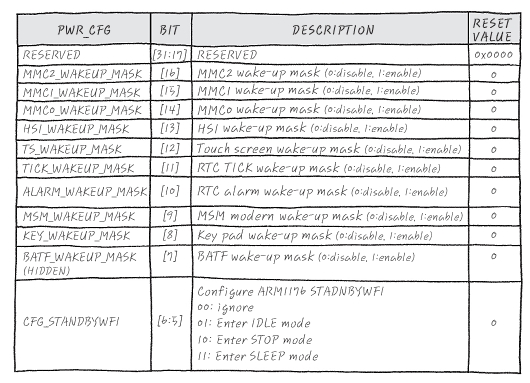 PWR_CFG BIT DESCRIPTION RESET VALUE
RESERVED [31:17] RESERVED 0x0000
MMC2_WAKEUP_MASK [16] MMC2 wake-up mask (0:disable, 1:enable) 0
MMC1_WAKEUP_MASK [15] MMC1 wake-up mask (0:disable, 1:enable) 0
MMC0_WAKEUP_MASK [14] MMC0 wake-up mask (0:disable, 1:enable) 0
HSI_WAKEUP_MASK [13] HSI wake-up mask (0:disable, 1:enable) 0
TS_WAKEUP_MASK [12] Touch screen wake-up mask (0:disable, 1:enable) 0
TICK_WAKEUP_MASK [11] RTC TICK wake-up mask (0:disable, 1:enable) 0
ALARM_WAKEUP_MASK [10] RTC alarm wake-up mask (0:disable, 1:enable) 0
MSM_WAKEUP_MASK [9] MSM modern wake-up mask (0:disable, 1:enable) 0
KEY_WAKEUP_MASK [8] Key pad wake-up mask (0:disable, 1:enable) 0
BATF_WAKEUP_MASK [7] BATF wake-up mask (0:disable, 1:enable) 0
(HIDDEN)
Configure ARM1176 STADNBYWFI
00: ignore
CFG_STANDBYWFI [6:5] 01: Enter IDLE mode 0
10: Enter STOP mode
11: Enter SLEEP mode